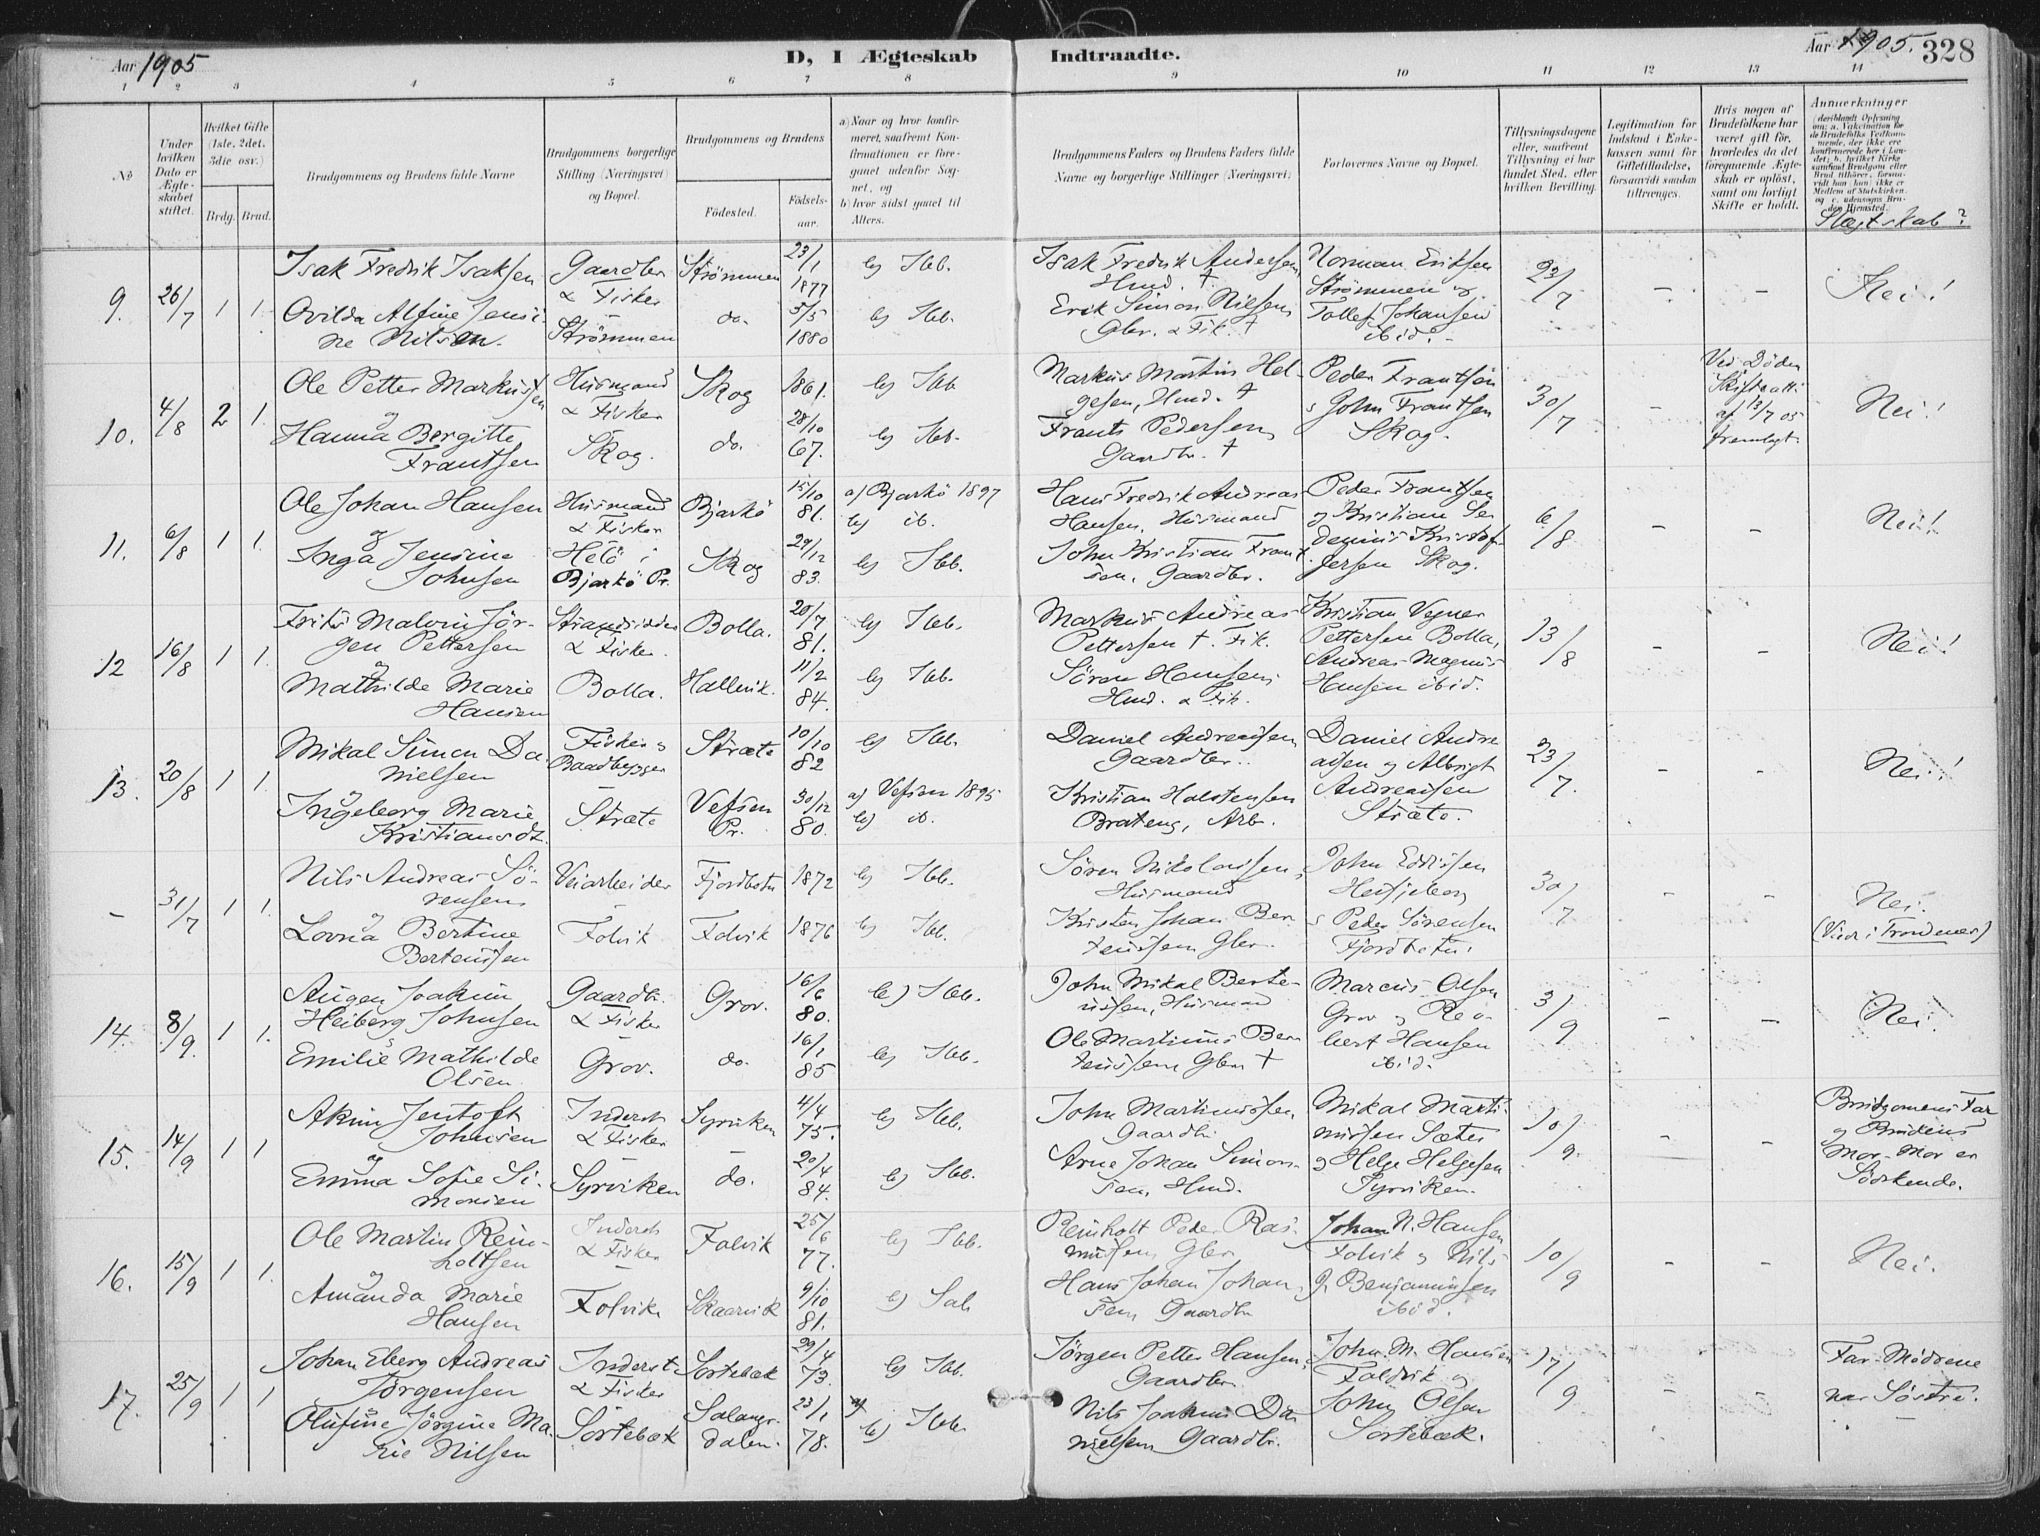 Aar 1905
D, I Ægteskab
Indtraadte.
Aar 1905.
328
1 2 3 4 5 6 7 8 9 10 11 12 13 14
No
Under hvilken Dato er Ægteskabet stiftet.
Hvilket Gifte (1ste, 2det, 3die osv.)
Brdg. Brud.
Brudgommens og Brudens fulde Navne
Brudgommens borgerlige Stilling (Næringsvei) og Bopæl.
Brudgommens og Brudens
Födested. Födselsaar.
a) Naar og hvor konfirmeret, saafremt Konfirmationen er foregaaet udenfor Sognet, og
b) hvor sidst gaaet til Alters.
Brudgommens Faders og Brudens Faders fulde Navne og borgerlige Stillinger (Næringsvei)
Forlovernes Navne og Bopæl.
Tillysningsdagene eller, saafremt Tillysning ei har fundet Sted, efter hvilken Bevilling.
Legitimation for Indskud i Enkekassen samt for Giftetilladelse, forsaavidt saadan tiltrænges.
Hvis nogen af Brudefolkene har været gift för, hvorledes da det foregaaende Ægteskab er oplöst, samt om lovligt Skifte er holdt.
Anmerkninger
Slægtskab?
9. 26/7 1 1.
Isak Fredrik Isaksen
Ovilda Alfine Jensi-
ne Nilsen.
Gaardbr
& Fisker
Strömmen
Strömmen
do.
23/1 1877
5/5 1880
b) Ibb.
b) Ibb.
Isak Fredrik Andersen,
Hmd. †
Erik Simon Nilsen
Gbr. & Fik. †
Norman Eriksen
Strömmen og
Tollef Johansen
ibid.
23/7
-
-
Nei!
10. 4/8 2 1.
Ole Petter Markussen
og
Hanna Bergitte
Frantsen
Husmand
& Fisker
Skog.
Skog
do.
1861.
28/10 67.
b) Ibb
b) Ibb.
Markus Martin Hel-
gesen, Hmd. †
Frants Pedersen
Gaardbr. †
Peder Frantsen
s John Frantsen
Skog.
30/7
-
Ved Döden
Skifteatt.
af 13/7 05
fremlagt.
Nei!
11. 6/8 1 1.
Ole Johan Hansen
og
Inga Jensine
Johnsen
Husmand
& Fisker
Helö i
Bjarkö Pr.
Bjarkö
Skog
15/10 81.
29/12 83.
a) Bjarkö 1897
b) ib.
b) Ibb.
Hans Fredrik Andreas
Hansen, Husmand
John Kristian Frant-
sen, Gaardbr.
Peder Frantsen
og Kristian Se
Kristof-
fersen Skog.
6/8
-
-
Nei!
12 16/8 1 1.
Frits Malvin Jör-
gen Pettersen
og
Mathilde Marie
Hansen
Strandsidder
& Fisker.
Bolla.
Bolla.
Hallevik.
20/7 81.
11/2 84.
b) Ibb.
b) Ibb.
Markus Andreas
Pettersen †. Fik.
Sören Hansen
Hmd. & Fik.
Kristian Vegner
Pettersen Bolla,
Andreas Magnus
Hansen ibid.
13/8
-
-
Nei!
13. 20/8 1 1.
Mikal Simon Da
nielsen
og
Ingeborg Marie
Kristiansdt.
Fisker og
Baadbygger
Stræte
Stræte
Vefsen
Pr.
10/10 82
30/12 80.
b) Ibb.
a) Vefsen 1895
b) ib.
Daniel Andreassen,
Gaardbr..
Kristian Holstensen
Brateng, Arb.
Daniel Andre
assen og Albrigt
Andreassen
Stræte.
23/7.
-
-
Nei!
- 31/7 1 1.
Nils Andreas Sö-
rensen
og
Lovna Bertine
Bertenssen
Veiarbeider
Folvik
Fjordbotn
Folvik
1872
1876
b) Ibb.
b) Ibb.
Sören Nikolaissen,
Husmand
Kristen Johan Ber
tenssen Gbr.
John
s Peder Sörensen
Fjordbotn.
30/7
-
-
Nei.
(Viet i Trondenes)
14. 8/9. 1 1.
Augen Joakim
Heiberg Johnsen
Emilie Mathilde
Olsen
Gaardbr.
& Fisker
Grov.
Grov.
do.
16/6 80.
16/1 85
b) Ibb.
b) Ibb.
John Mikal Berte-
ussen, Husmand
Ole Martinus Ber
teussen Gbr †
Marcus Olsen
Grov og Ro-
bert Hansen
ibid.
3/9
-
-
Nei.
15. 14/9 1 1
Akim Jentoft
Johnsen
og
Emma Sofie Si-
monsen
Inderst
& Fisker
Syrviken
Syrviken
do.
4/4 75.
20/4 84.
b) Ibb.
b) Ibb.
John Martinussen,
Gaardbr.
Arne Johan Simon-
sen, Hmd.
Mikal Marti-
nussen Sæter
og Helge Helgesen
Syrviken.
10/9.
-
-
Brudgomens Far
og Brudens
Mor-Mor er
Söskende.
16. 15/9 1 1.
Ole Martin Rein-
holtsen
og
Amanda Marie
Hansen
Inderst
& Fisker
Folvik
Folvik
Skaarvik
25/6 77.
9/10 81.
b) Ibb.
b) Sal.
Reinholt Peder Ras-
mussen Gbr
Hans Johan Johan-
sen Gaardbr
Johan N. Hansen
Folvik og Nils
J. Benjaminsen
ibid.
10/9
-
-
Nei.
17. 25/9 1 1
Johan Eberg Andreas
Jörgensen
Olufine Jörgine Ma-
rie Nilsen
Inderst
& Fisker
Sortebæk
Sortebæk
Salangs-
dalen.
29/4 73.
23/1 78.
b) Ibb.
a)
b) Ibb.
Jörgen Petter Hansen,
Gaardbr
Nils Joakim Da
nielsen Gaardbr.
John M. Hansen
Foldvik og
John Olsen
Sortebæk.
17/9
-
-
Far-Mödrene
var Söstre.